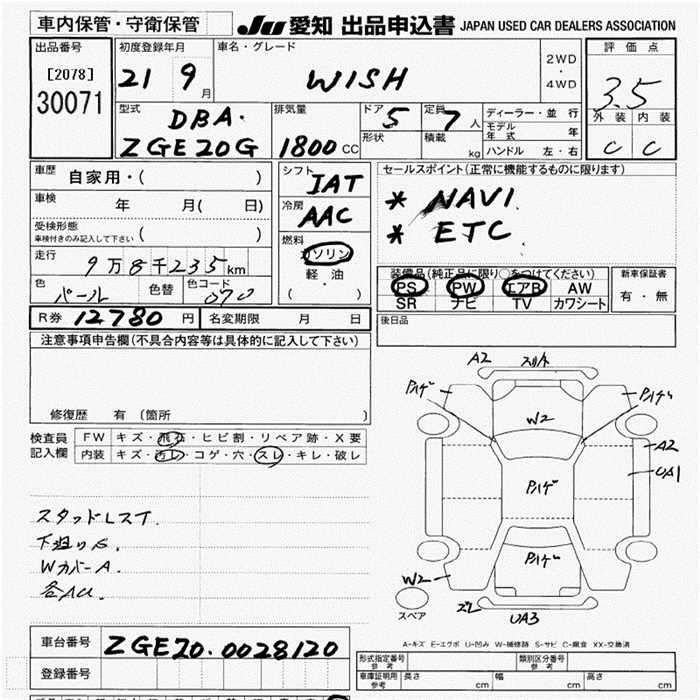 車内保管・守衛保管
JU 愛知 出品申込書 JAPAN USED CAR DEALERS ASSOCIATION
出品番号 [2078] 30071
初度登録年月 21 9 月
車名・グレード WISH
2WD ・ 4WD
評価点 3.5
外装 内装
C C
型式 DBA・ ZGE20G
排気量 1800 CC
ドア 5
形状
定員 7 人
積載 kg
ディーラー・並行
モデル年式 年
ハンドル 左・右
車歴 自家用・( )
車検 年 月( 日)
受検形態 車検付きのみ記入して下さい ( )
走行 9万8千235km
色 パール 色替 色コード 070
シフト IAT
冷房 AAC
燃料 ガソリン
軽・油
( ・ )
セールスポイント(正常に機能するものに限ります)
* NAVI
* ETC
装備品(純正品に限り○をつけてください)
PS PW エアB AW
SR ナビ TV カワシート
新車保証書
有・無
R券 12780 円 名変期限 月 日
後日品
注意事項申告欄(不具合内容等は具体的に記入して下さい)
修復歴 有 (箇所 )
検査員記入欄
FW キズ・飛石・ヒビ割・リペア跡・X要
内装 キズ・汚レ・コゲ・穴・スレ・キレ・破レ
スタッドレスT.
下廻りS.
Wカバー A.
各AU.
A2
W2
A2
UA1
W2
UA3
スペア
A-キズ E-エクボ U-凹み W-補修跡 S-サビ C-腐食 XX-交換済
車台番号 ZGE20.0028120
登録番号
形式指定番号 参考 類別区分番号 参考
車庫証明用 参考 長さ cm 幅 cm 高さ cm